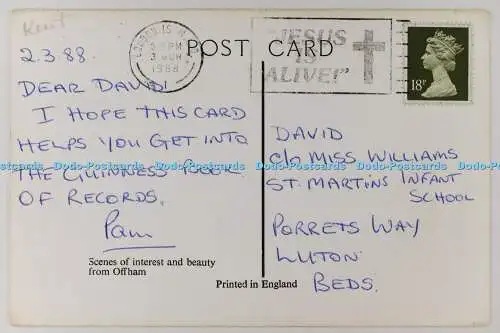 Kent
2.3.88.
POST CARD
LONDON IS
PM
1988
"JESUS
IS
ALIVE!"
18P
DEAR DAVID!
I HOPE THIS CARD
HELPS YOU GET INTO
THE GUINNESS BOOK
OF RECORDS.
Pam
DAVID
C/O MISS WILLIAMS
ST. MARTINS INFANT
SCHOOL
PORRETS WAY
LUTON
BEDS.
Dodo-Postcards Dodo-Postcards Dodo-Postcards Dodo-Postcards
Scenes of interest and beauty
from Offham
Printed in England